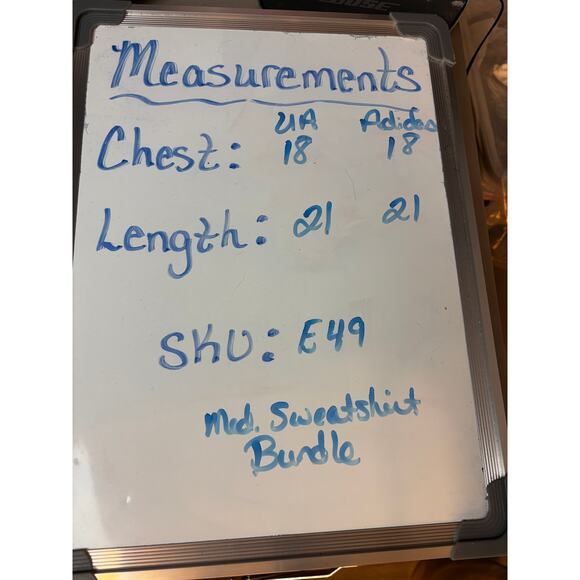 BOSE
Measurements
UA Adidas
Chest: 18 18
Length: 21 21
SKU: E49
Med. Sweatshirt
Bundle